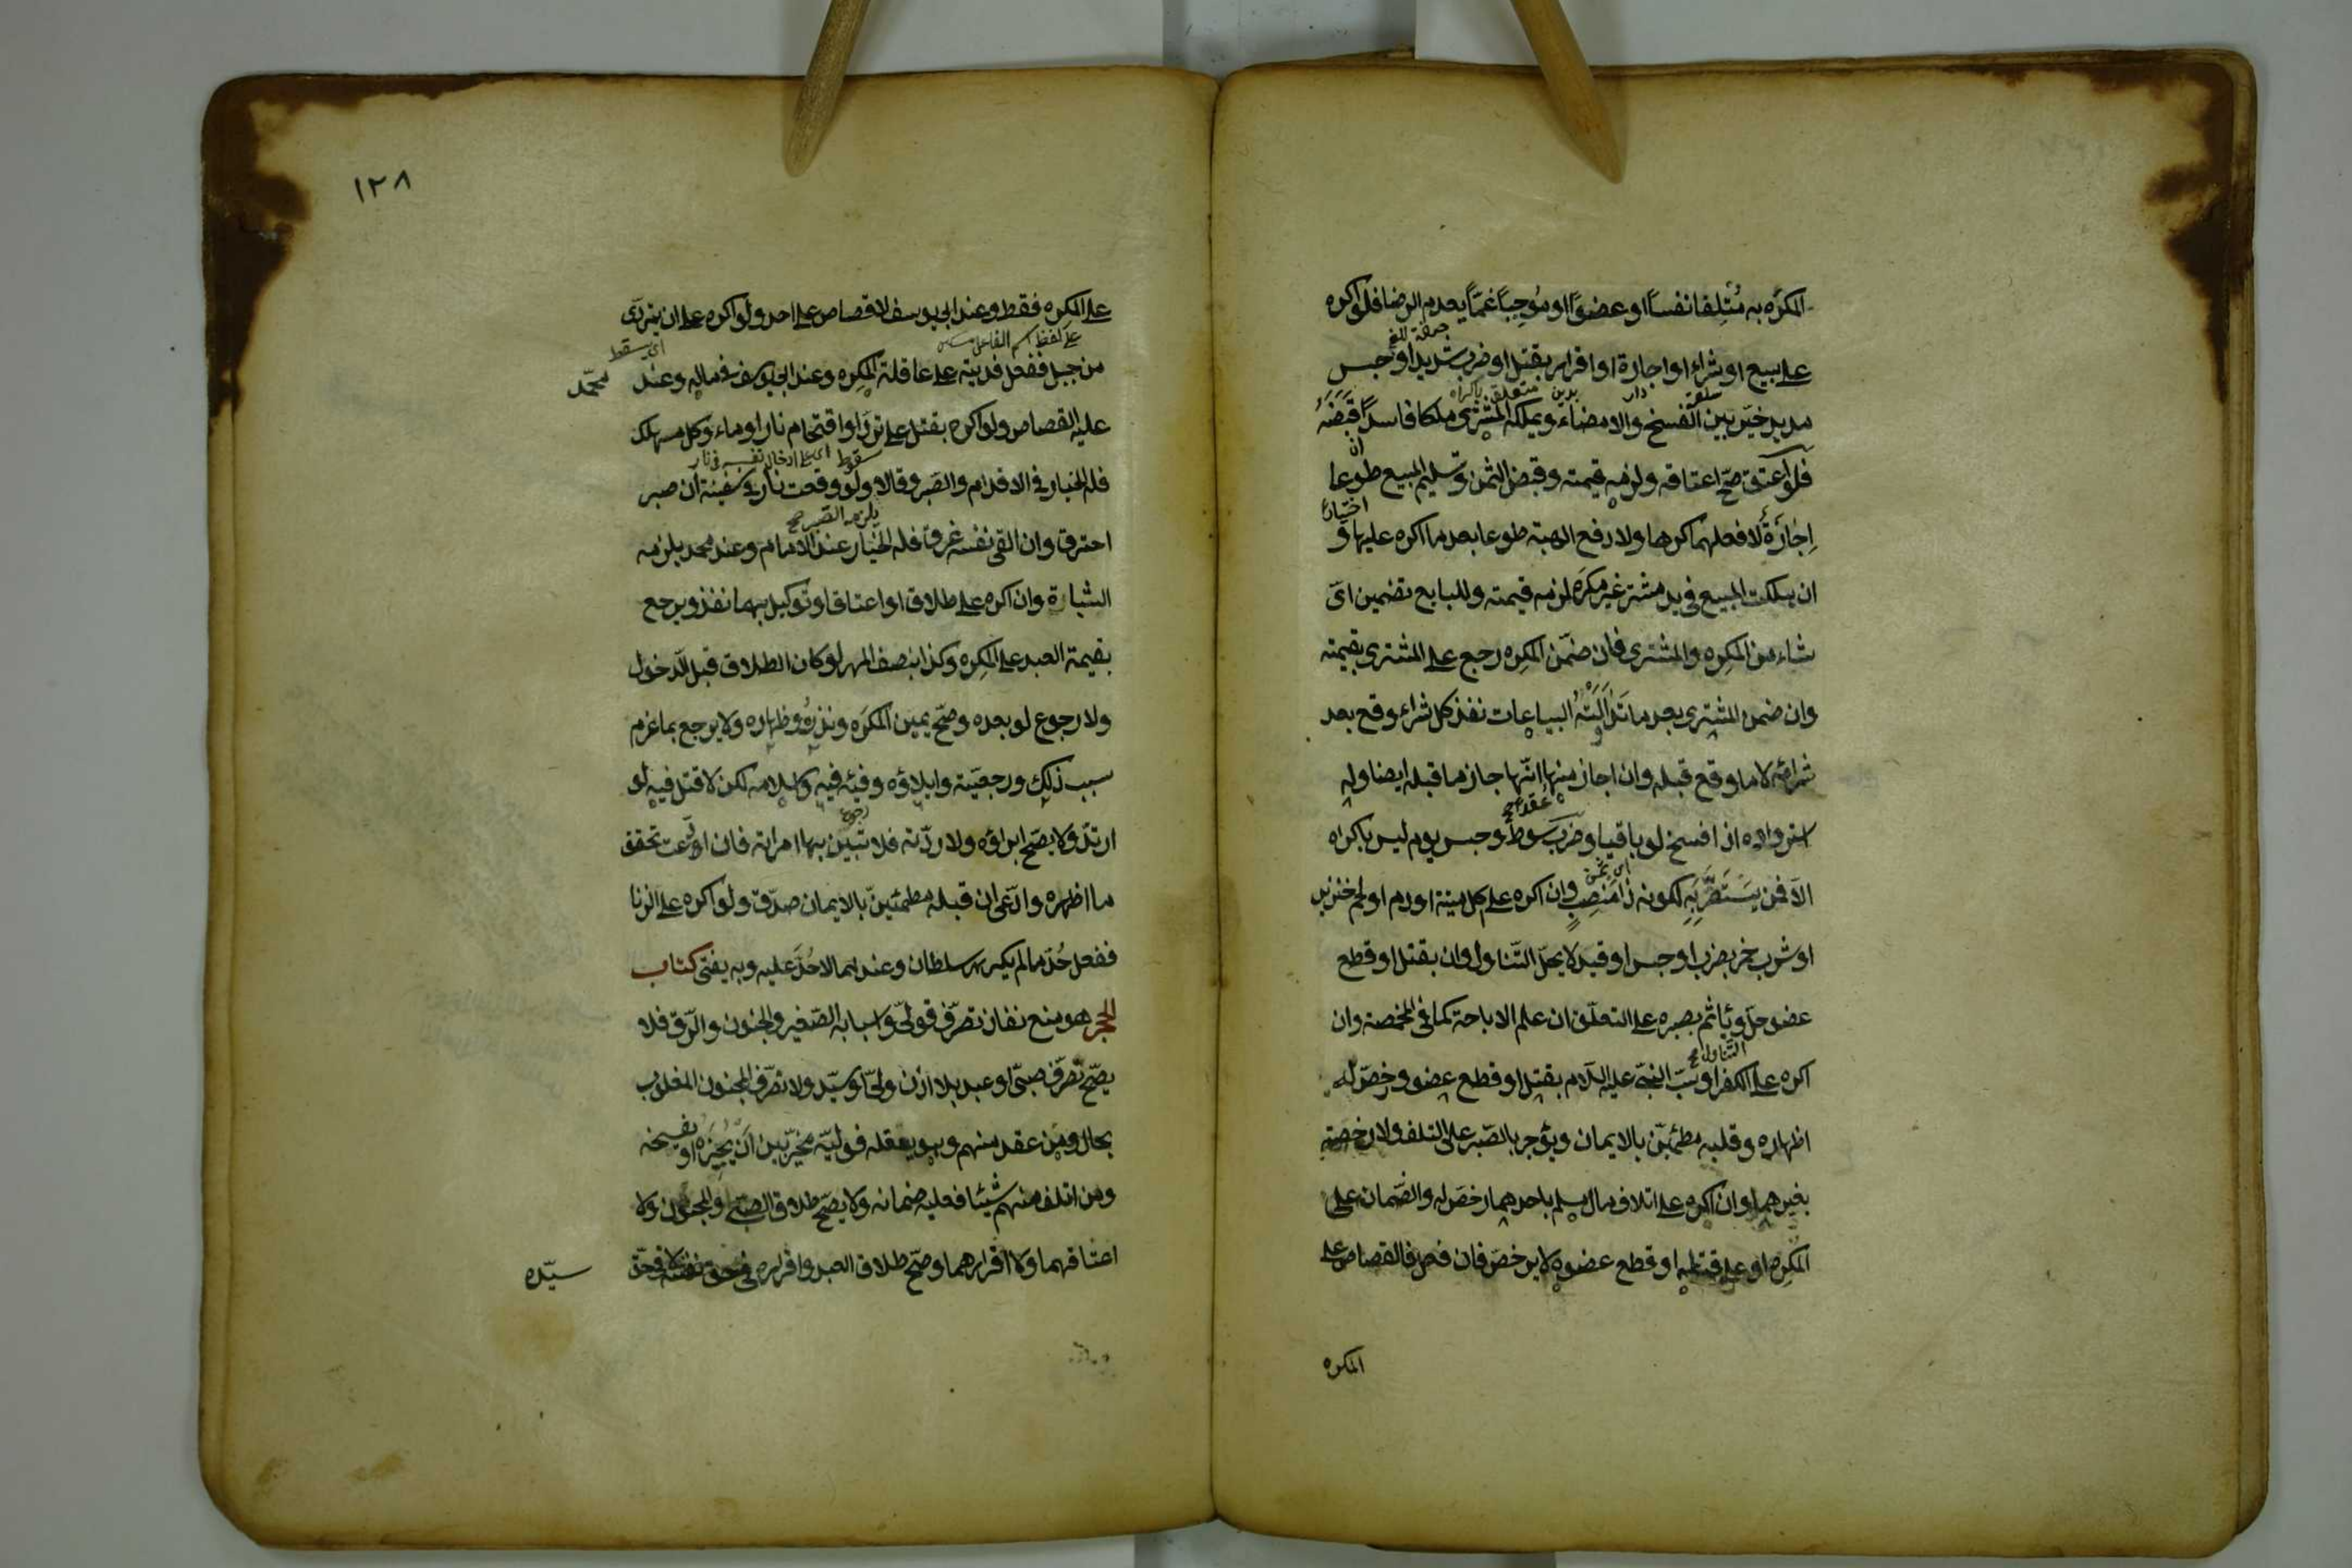 المكرَه به مُتلِفا نفساً او عضوًا او مُوجِباً غمّاً يعدم الرضا فلو اكره
على بيع او شراء او اجارة او اقرار بقتل او ضرب شديد او حبس
مديد خيّر بين الفسخ والامضاء ويملكه المشترى ملكا فاسداً ان قبَضَهُ
فلو اعتق صحّ اعتاقه ولزمه قيمته وقبض الثمن وتسليم المبيع طوعا
اِجازَةٌ لا فعلهما كرها ولا دفع الهبة طوعا بعد ما اكره عليها و
ان هلكت المبيع فى يد مشتر غير مكرَه لزمه قيمته وللبايع تضمين اىّ
شاء من المكرِه والمشترى فان ضمّن المكرِه رجع على المشترى بقيمته
وان ضمن المشترى بعد ما تداولته البياعات نفذ كل شراء وقع بعد
شرائه لا ما وقع قبله وان اجاز منها ايّها جاز ما قبله ايضا وله
استرداده اذا فسخ لو باقيا وضرب سوط وحبس يوم ليس باكراه
الّا فمن يستضرّ به لكونه ذا منصِبٍ وان اكره على اكل ميتة او دم او لحم خنزير
او شرب خمر بضرب او حبس او قيد لا يحلّ التّناول وان بقتل او قطع
عضو حلّ ويأثم بصبره على التلف ان علم الاباحة كما فى المخمصة وان
اكره على الكفر او سبّ النبىّ عليه السّلام بقتل او قطع عضو رخصّ له
اظهاره وقلبه مطمئنّ بالايمان ويؤجر بالصّبر على التلف ولا رخصة
بغيرهما وان اكره على اتلاف مال مسلم باحدهما رخصّ له والضّمان على
المكرِه او على قتله او قطع عضوه لا يرخصّ فان فعل فالقصاص على
المكره
١٢٨
على المكره فقط وعند ابى يوسف لا قصاص على احد ولو اكره على ان يتردّى
على لفظ اسم الفاعل
اى يسقط
من جبل ففعل فديته على عاقلة المكرِه وعند ابى يوسف فى ماله وعند محمّد
عليه القصاص ولو اكره بقتل على تردّ او اقتحام نار او ماء وكل مهلك
سقوط
اى على ادخال نفسه فى نار
فله الخيار فى الاقدام والصّبر وقالا يلزمه الصّبر ولو وقعت نار فى سفينة ان صبر
احترق وان القى نفسه غرق فله الخيار عند الامام وعند محمد يلزمه
الثبات وان اكره على طلاق او اعتاق او توكيل بهما نفذ ويرجع
بقيمة العبد على المكرِه وكذا بنصف المهر لو كان الطلاق قبل الدّخول
ولا رجوع لو بعده وصحّ يمين المكرَه ونذرُه وظهاره ولا يرجع بما غرم
بسبب ذلك ورجعيّته وايلاؤه وفيئه فيه واسلامه لكن لا قتل فيه لو
رجوع
ارتدّ ولا يصّح ابراؤه ولا ردّته فلا تبين بها امراته فان ادّعت تحقق
ما اظهره وادّعى ان قبله مطمئنّ بالايمان صدّق ولو اكره على الزنا
ففعل حُدّ ما لم يكرهه سلطان وعندهما لا حُدّ عليه وبه يفتى كتاب
الحجر هو منع نفاذ تصرّف قولىّ واسبابه الصّغر والجنون والرّق فلا
يصّح تصرّف صبىّ او عبد بلا اذن ولىّ او سيّد ولا تصرّف المجنون المغلوب
بحال ومن عقد منهم وهو يعقله فوليّه مخيّر بين ان يُجيزَه او يفسخه
ومن اتلف منهم شيئا فعليه ضمانه ولا يصّح طلاق الصبىّ والمجنون ولا
اعتاقهما ولا اقرارهما وصحّ طلاق العبد واقراره فى حق نفسه لا فى حقّ
سيّده